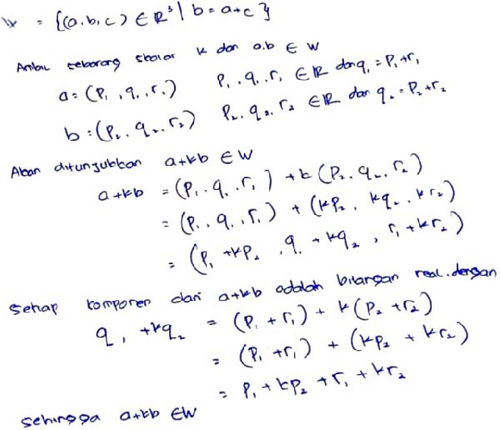 W = {(a,b,c) ∈ R³ | b = a+c}
Ambil sebarang skalar k dan a,b ∈ W
a = (p₁, q₁, r₁) p₁, q₁, r₁ ∈ R dan q₁ = p₁+r₁
b = (p₂, q₂, r₂) p₂, q₂, r₂ ∈ R dan q₂ = p₂+r₂
Akan ditunjukkan a+kb ∈ W
a+kb = (p₁, q₁, r₁) + k(p₂, q₂, r₂)
= (p₁, q₁, r₁) + (kp₂, kq₂, kr₂)
= (p₁+kp₂, q₁+kq₂, r₁+kr₂)
Setiap komponen dari a+kb adalah bilangan real dengan
q₁ + kq₂ = (p₁+r₁) + k(p₂+r₂)
= (p₁+r₁) + (kp₂ + kr₂)
= p₁ + kp₂ + r₁ + kr₂
sehingga a+kb ∈ W